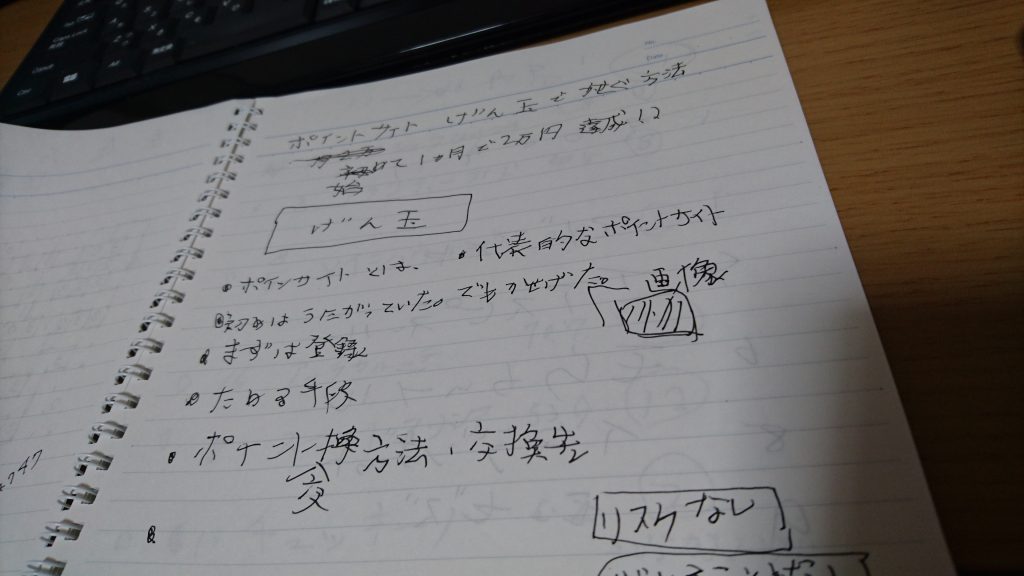 ポイントサイト げん玉でかせぐ方法
始めて1ヵ月で2万円 達成!?
げん玉
・ポインサイトとは、 ・代表的なポイントサイト
・初めはうたがっていた。でもかせげた。 画像
・まずは登録
・ためる手段
・ポイント交換方法、交換先
リスクなし